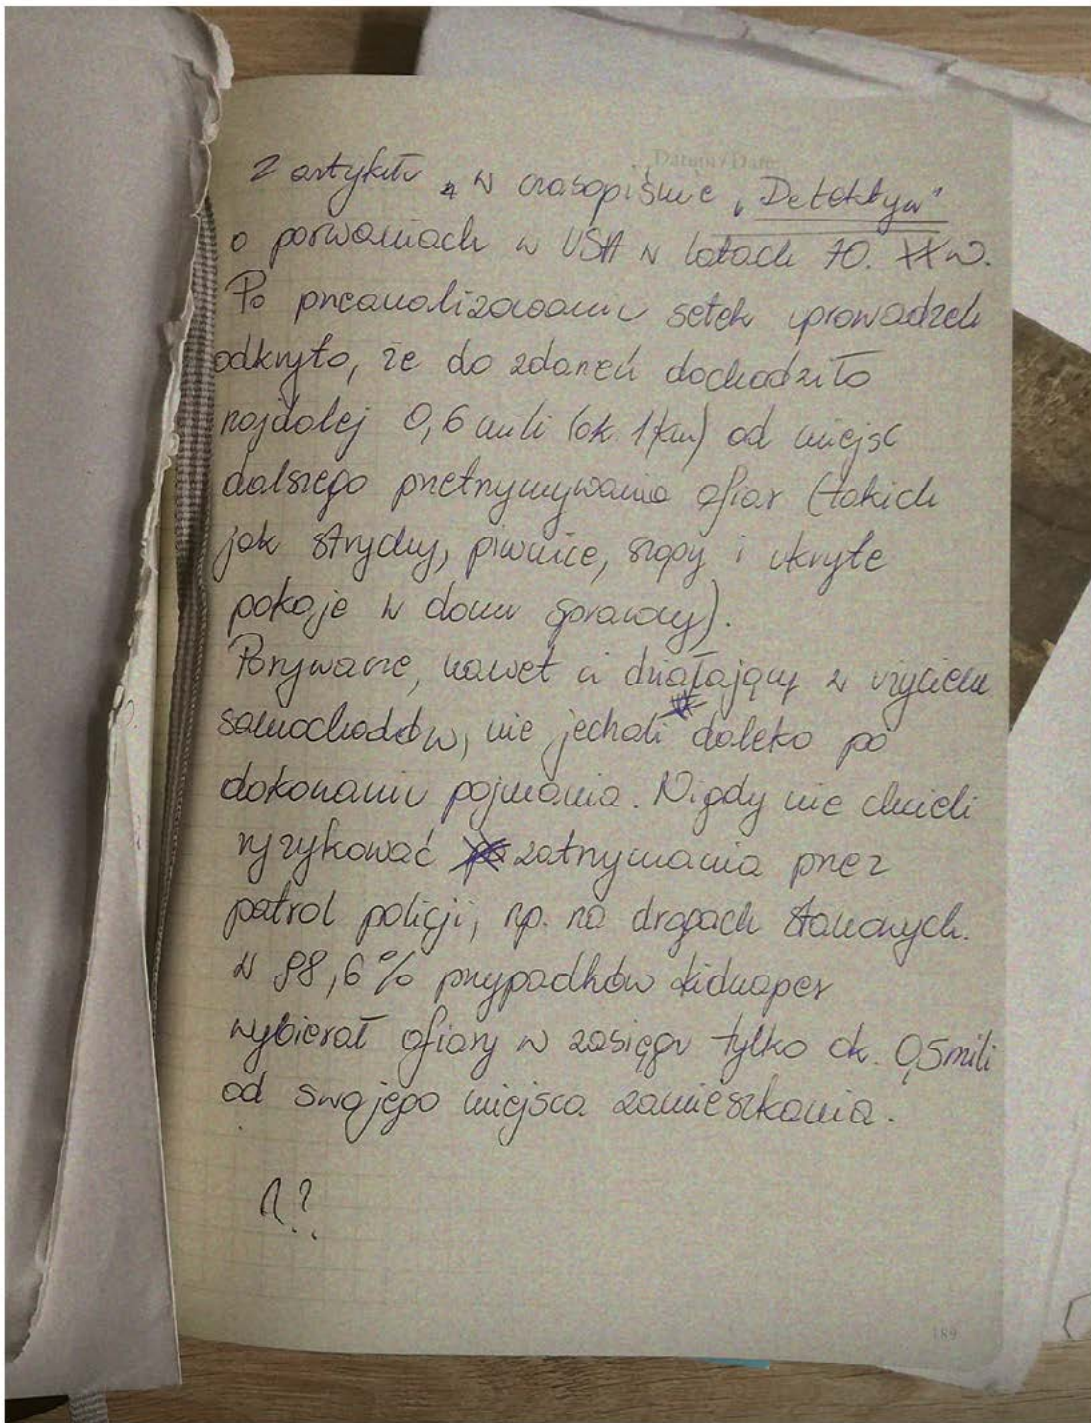 Datum/Date
Z artykułu w czasopiśmie „Detektyw"
o porwaniach w USA w latach 70. XX w.
Po przeanalizowaniu setek uprowadzeń
odkryto, że do zdarzeń dochodziło
najdalej 0,6 mili (ok. 1 km) od miejsc
dalszego przetrzymywania ofiar (takich
jak strychy, piwnice, szopy i ukryte
pokoje w domu sprawcy).
Porywacze, nawet ci działający z użyciem
samochodów, nie jechali daleko po
dokonaniu pojmania. Nigdy nie chcieli
ryzykować zatrzymania przez
patrol policji, np. na drogach stanowych.
W 98,6% przypadków kidnaper
wybierał ofiary w zasięgu tylko ok. 0,5 mili
od swojego miejsca zamieszkania.
189